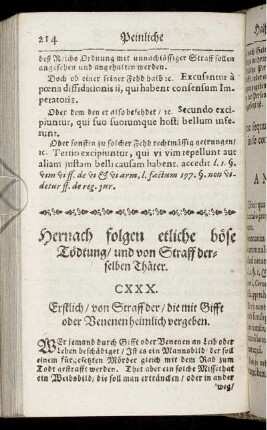 214 Peinliche
deß Reichs Ordnung mit unnachlässiger Straff sollen
angesehen und angehalten werden.
Doch ob einer seiner Fehd halb ꝛc. Excusantur à
pœna diffidationis ii, qui habent consensum Im-
peratoris.
Oder dem den er also befehdet / ꝛc. Secundo exci-
piuntur, qui suo suorumque hosti bellum infe-
runt.
Oder sonsten zu solcher Fehd rechtmässig getrungen /
ꝛc. Tertio excipiuntur, qui vi vim repellunt aut
aliam justam belli causam habent. accedit l. 1. §.
vim vi ff. de vi & vi arm. l. factum 197. §. non vi-
detur ff. de reg. jur.
Hernach folgen etliche böse
Tödtung / und von Straff der-
selben Thäter.
CXXX.
Erstlich / von Straff der / die mit Gifft
oder Venenen heimlich vergeben.
WEr jemand durch Gifft oder Venenen an Leib oder
Leben beschädiget / Ist es ein Mannsbild der soll
einem fürgesetzten Mörder gleich mit dem Rad zum
Todt gestrafft werden. Thet aber ein solche Missethat
ein Weibsbild, die soll man ertráncken / oder in ander
weg /